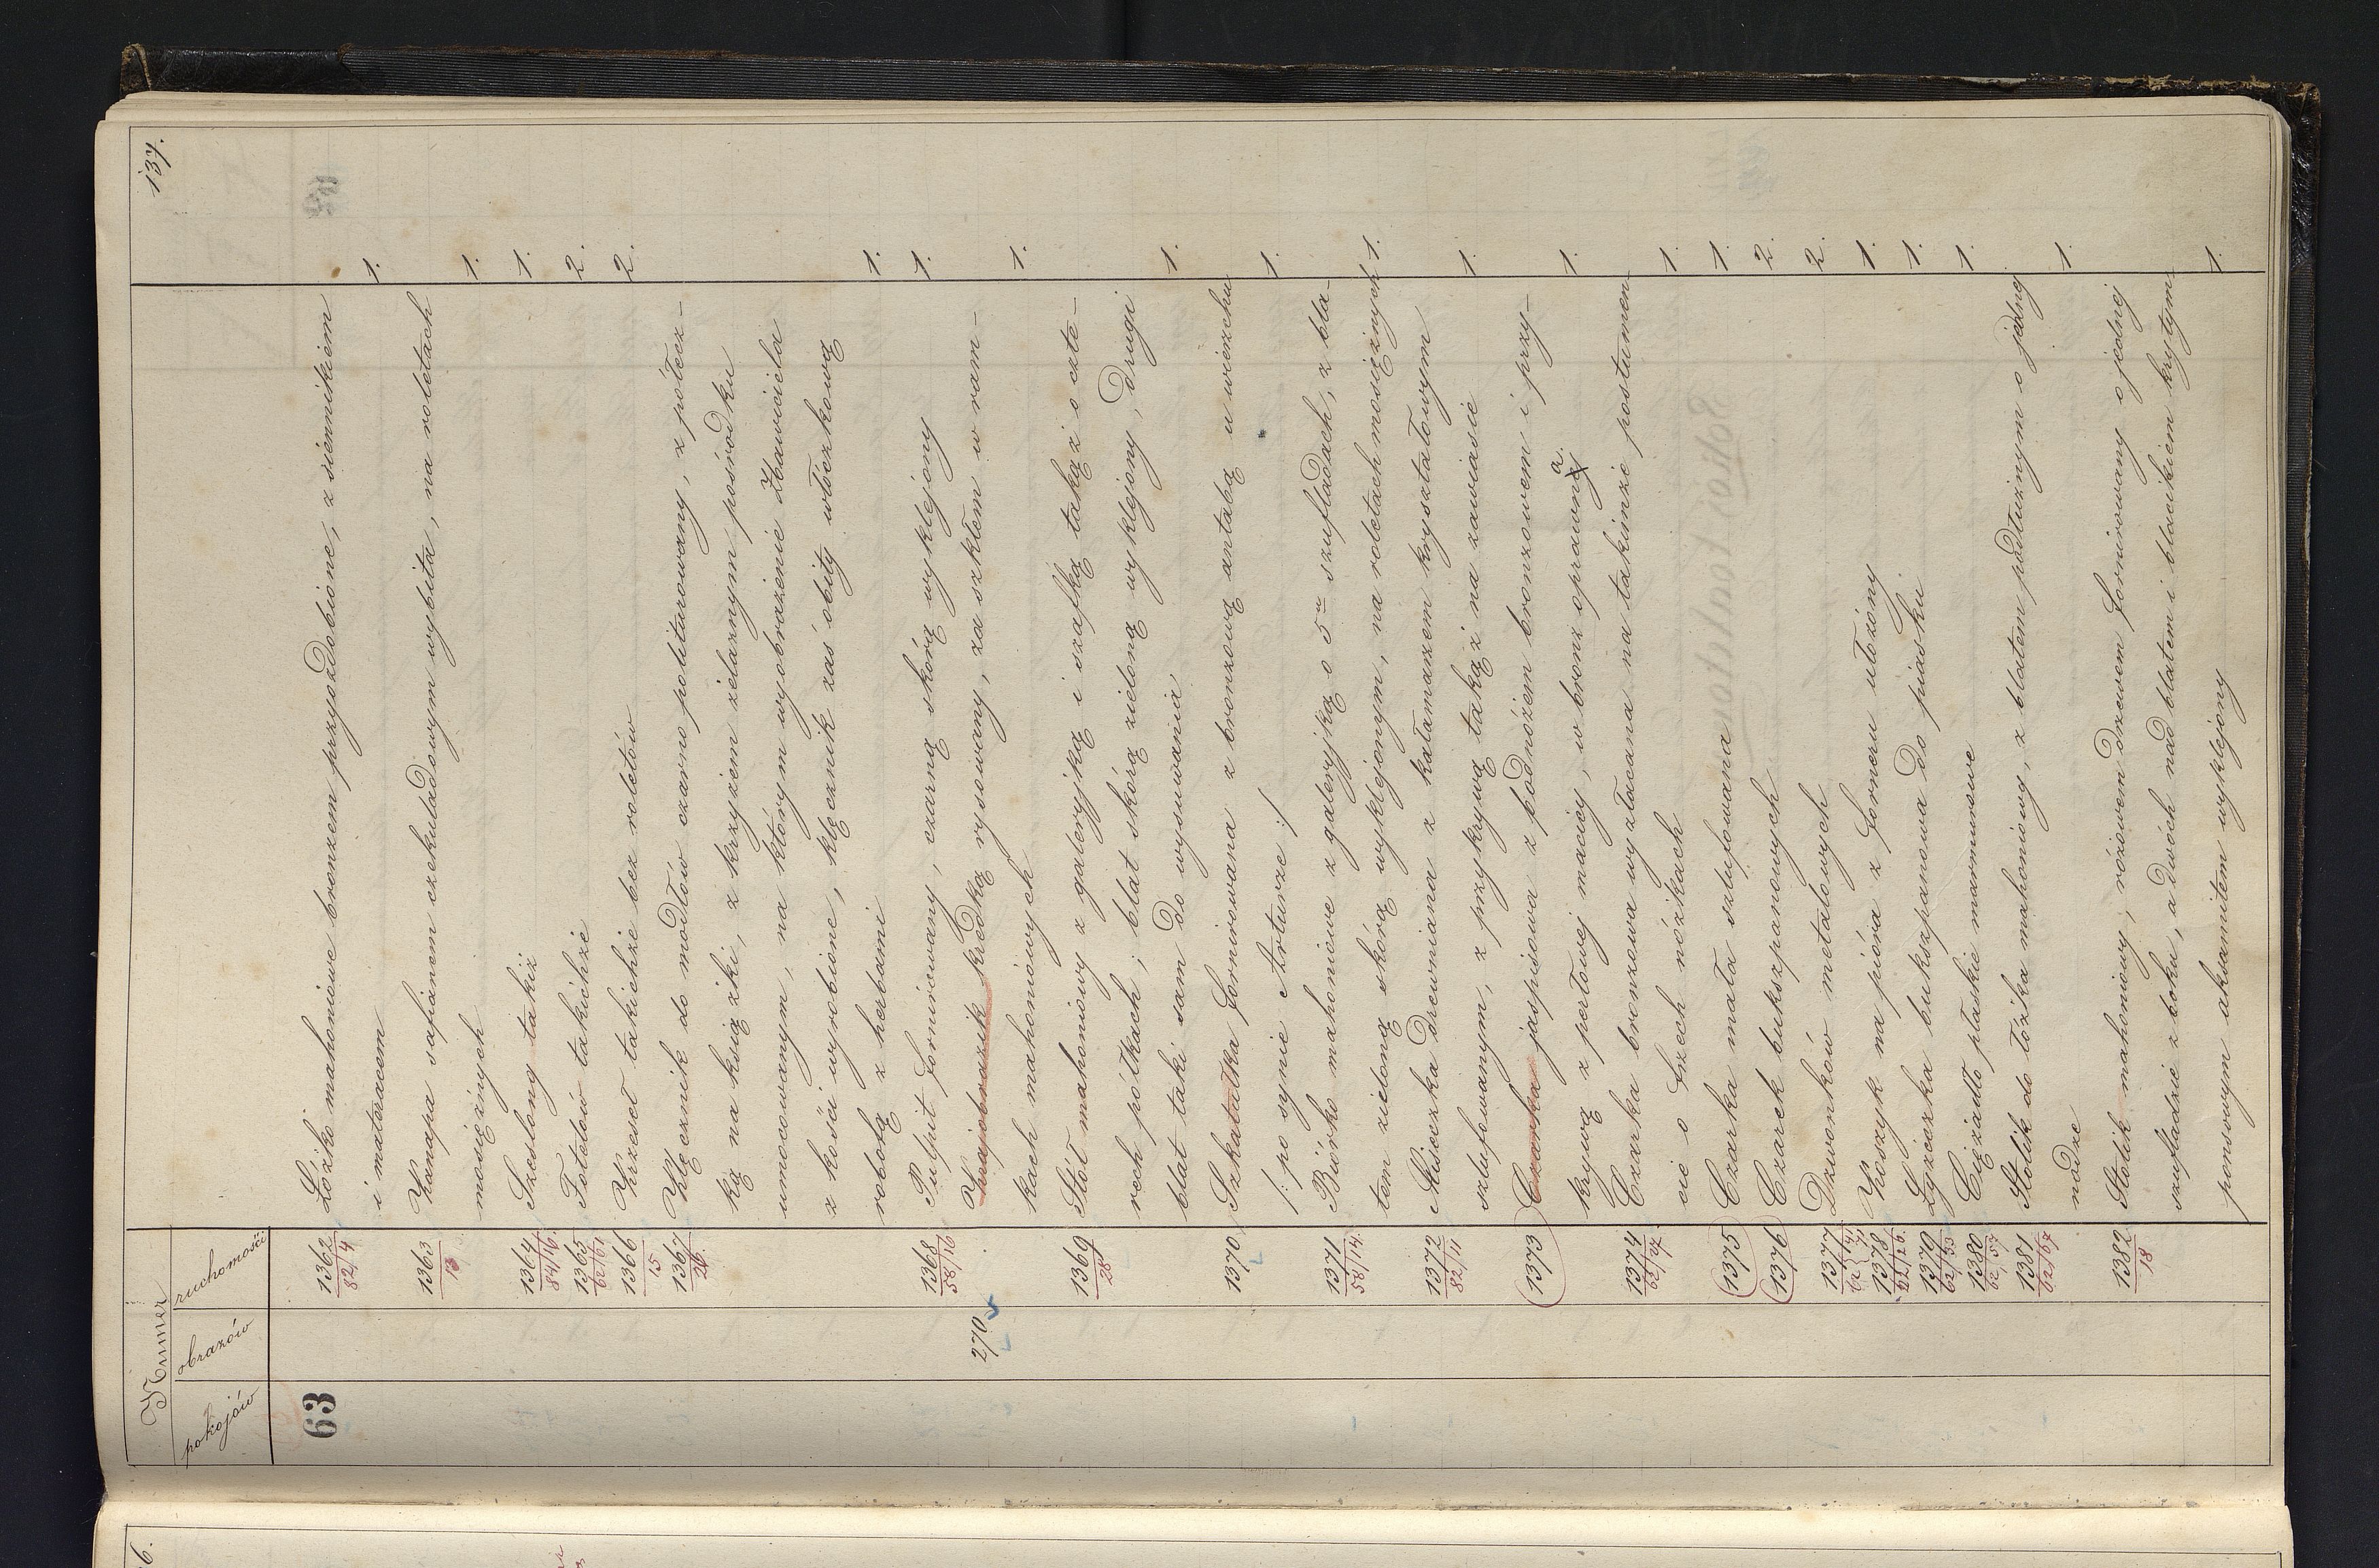 137.
Numer
pokojów obrazów ruchomości
63 1362 Łóżko mahoniowe bronzem przyozdobione, z siennikiem
82/4 i materacem 1.
1363 Kanapa safianem czekuladowym wybita, na roletach
13 mosiężnych 1.
1364 Szeslong takiż 1.
84/16.
1365 Fotelów takichże 2.
62/61
1366 Krzeseł takichże bez roletów 2.
15
1367 Klęcznik do modłów czarno politurowany, z półecz-
26. ką na książki, z krzyżem żelaznym pośrodku
umocowanym, na którym wyobrażenie Zbawiciela
z kości wyrobione, klęcznik zaś obity włóczkową
robotą z herbami 1.
1368 Pulpit fornirowany, czarną skórą wyklejony 1.
58/16
270 Krajobrazik kredką rysowany, za szkłem w ram-
kach mahoniowych 1.
1369 Stół mahoniowy z galeryjką i szafką takąż o czte-
28 rech półkach; blat skórą zieloną wyklejony, drugi
blat taki sam do wysuwania 1.
1370 Szkatułka fornirowana z bronzową antabą u wierzchu
/: po synie Arturze :/ 1.
1371 Biórko mahoniowe z galeryjką o 5u szufladach, z bla-
58/14. tem zieloną skórą wyklejonym, na roletach mosiężnych 1.
1372 Miseczka drewniana z kałamarzem kryształowym
82/11 szlufowanym, z przykrywą takąż na zawiasie 1.
1373 Czarka jaspisowa z podnóżem bronzowem i przy-
krywą z perłowej macicy, w bronz oprawna 1.
1374 Czarka bronzowa wyzłacana na takimże postumen-
62/27 cie o trzech nóżkach 1.
1375 Czarka mała szlufowana 1.
1376 Czarek bukszpanowych 2.
1377 Dzwonków metalowych 2.
1378 Koszyk na pióra z forneru ułożony 1.
62/26.
1379 Łyżeczka bukszpanowa do piasku 1.
62/33
1380 Ciężadło płaskie marmurowe 1.
62/57
1381 Stolik do łóżka mahoniowy, z blatem podłużnym o jednej
62/67 nodze 1.
1382 Stolik mahoniowy, różowem drzewem fornirowany o jednej
18 szufladzie z boku, a dwóch nad blatem i blacikiem krytym
ponsowym aksamitem wyklejony 1.